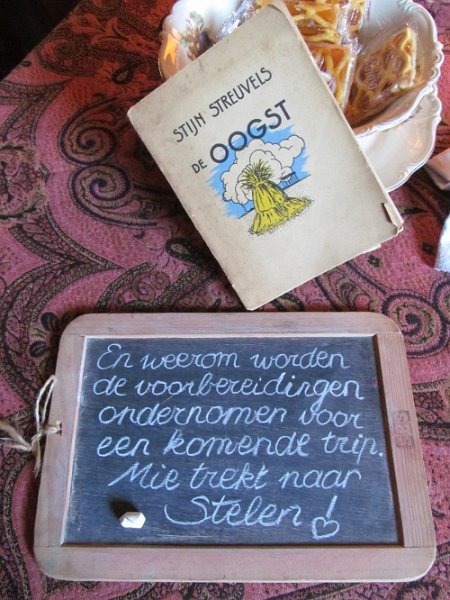 STIJN STREUVELS
DE OOGST
En weerom worden
de voorbereidingen
ondernomen voor
een komende trip.
Mie trekt naar
Stelen!